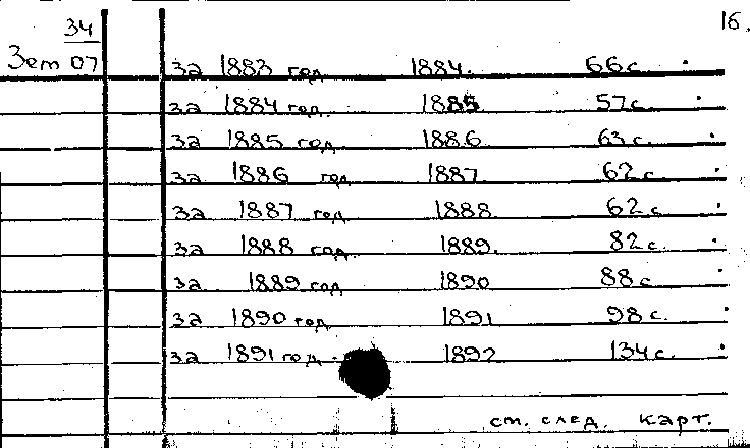 16.
34
Зем 07
за 1883 год 1884. 66 с.
за 1884 год 1885 57 с.
за 1885 год 1886 63 с.
за 1886 год 1887 62 с.
за 1887 год 1888 62 с.
за 1888 год 1889. 82 с.
за 1889 год 1890 88 с
за 1890 год 1891 98 с.
за 1891 год 1892 134 с.
ст. след. карт.